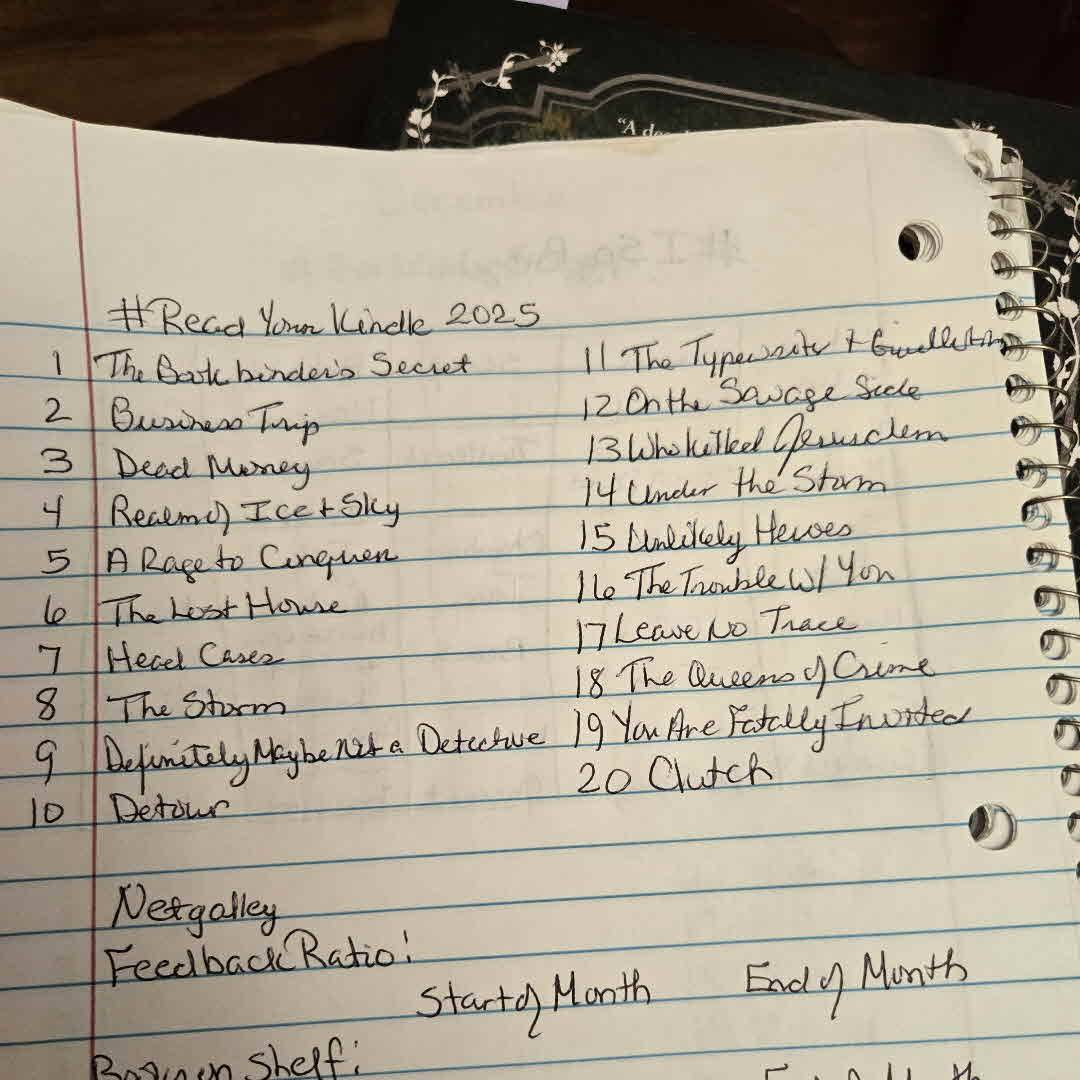 "A
#Read Your Kindle 2025
1 The Bookbinder's Secret
2 Business Trip
3 Dead Money
4 Realm of Ice + Sky
5 A Rage to Conquer
6 The Lost House
7 Head Cases
8 The Storm
9 Definitely Maybe Not a Detective
10 Detour
11 The Typewriter + Guillotine
12 On the Savage Side
13 Who Killed Jerusalem
14 Under the Storm
15 Unlikely Heroes
16 The Trouble W/ You
17 Leave No Trace
18 The Queens of Crime
19 You Are Fatally Invited
20 Clutch
Netgalley
Feedback Ratio:
Start of Month End of Month
Shelf: